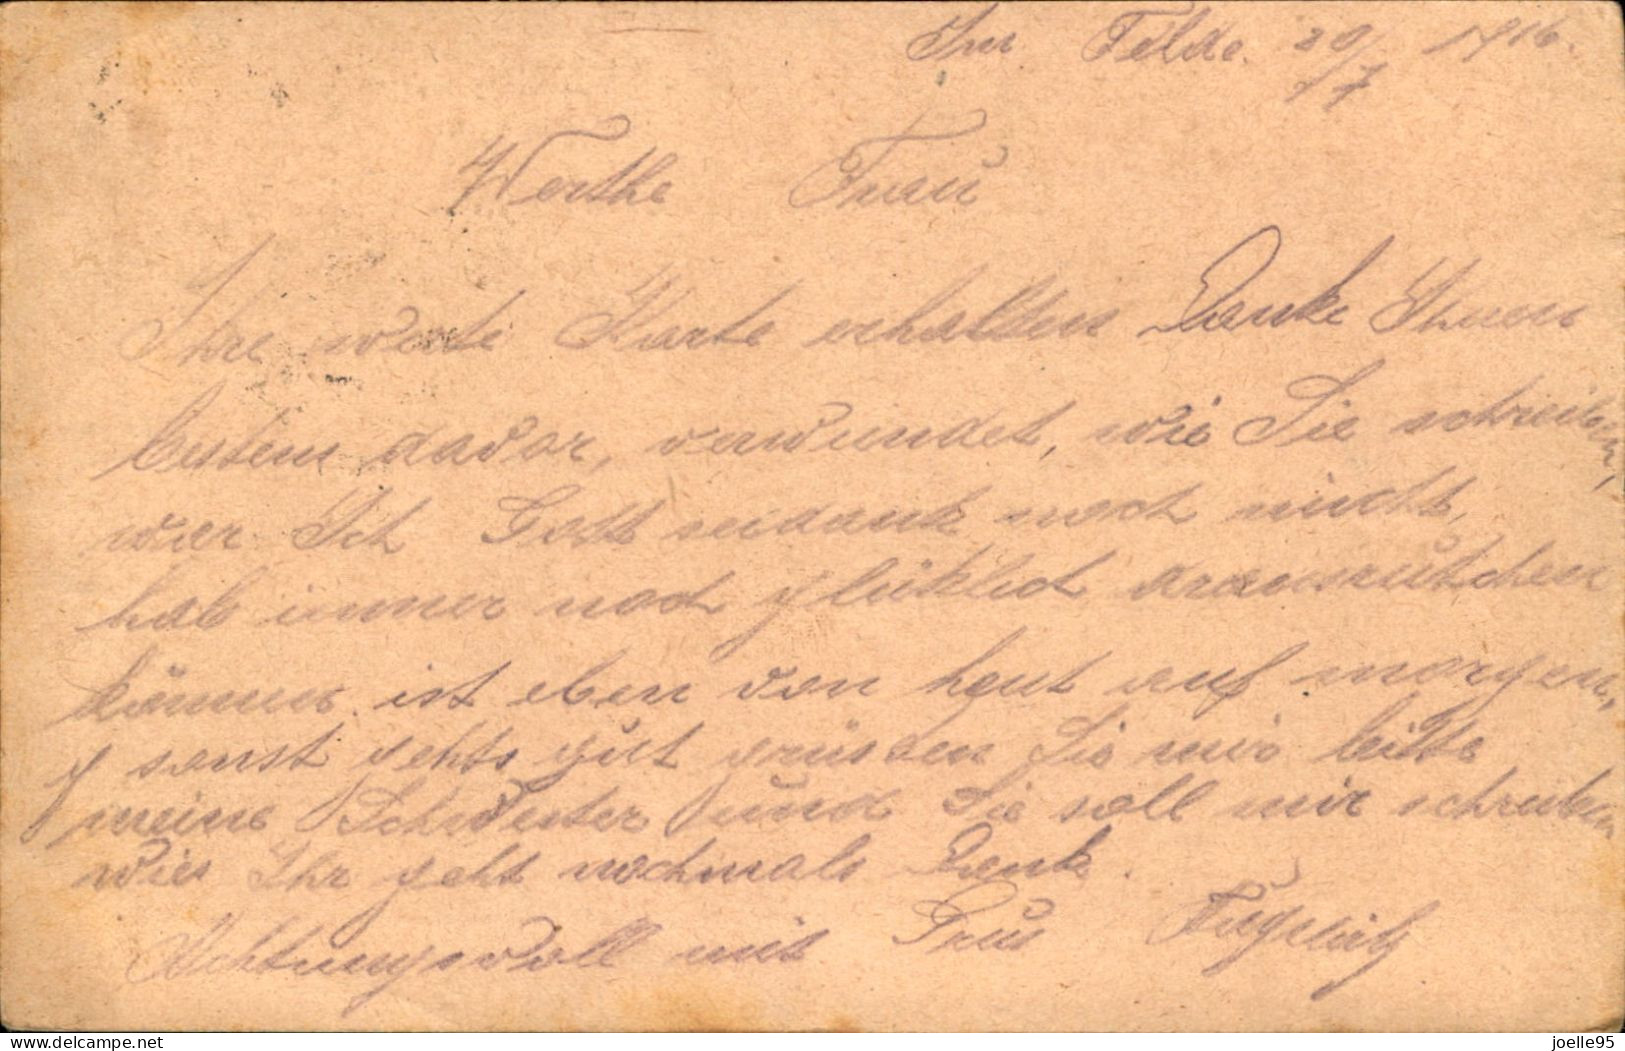 Im Felde. 20/7 1916.
Werthe Frau
Ihre werte Karte erhalten Danke Ihnen
bestens davor, verwundet, wie Sie schreiben,
war Ich Gott seidank noch nicht,
hab immer noch glücklich
können. ist eben von heut auf morgen,
sonst gehts gut grüssen Sie mir bitte
meine Schwester und Sie soll mir schreiben
wies Ihr geht nochmals Dank.
Achtungsvoll mit Grus
joelle95